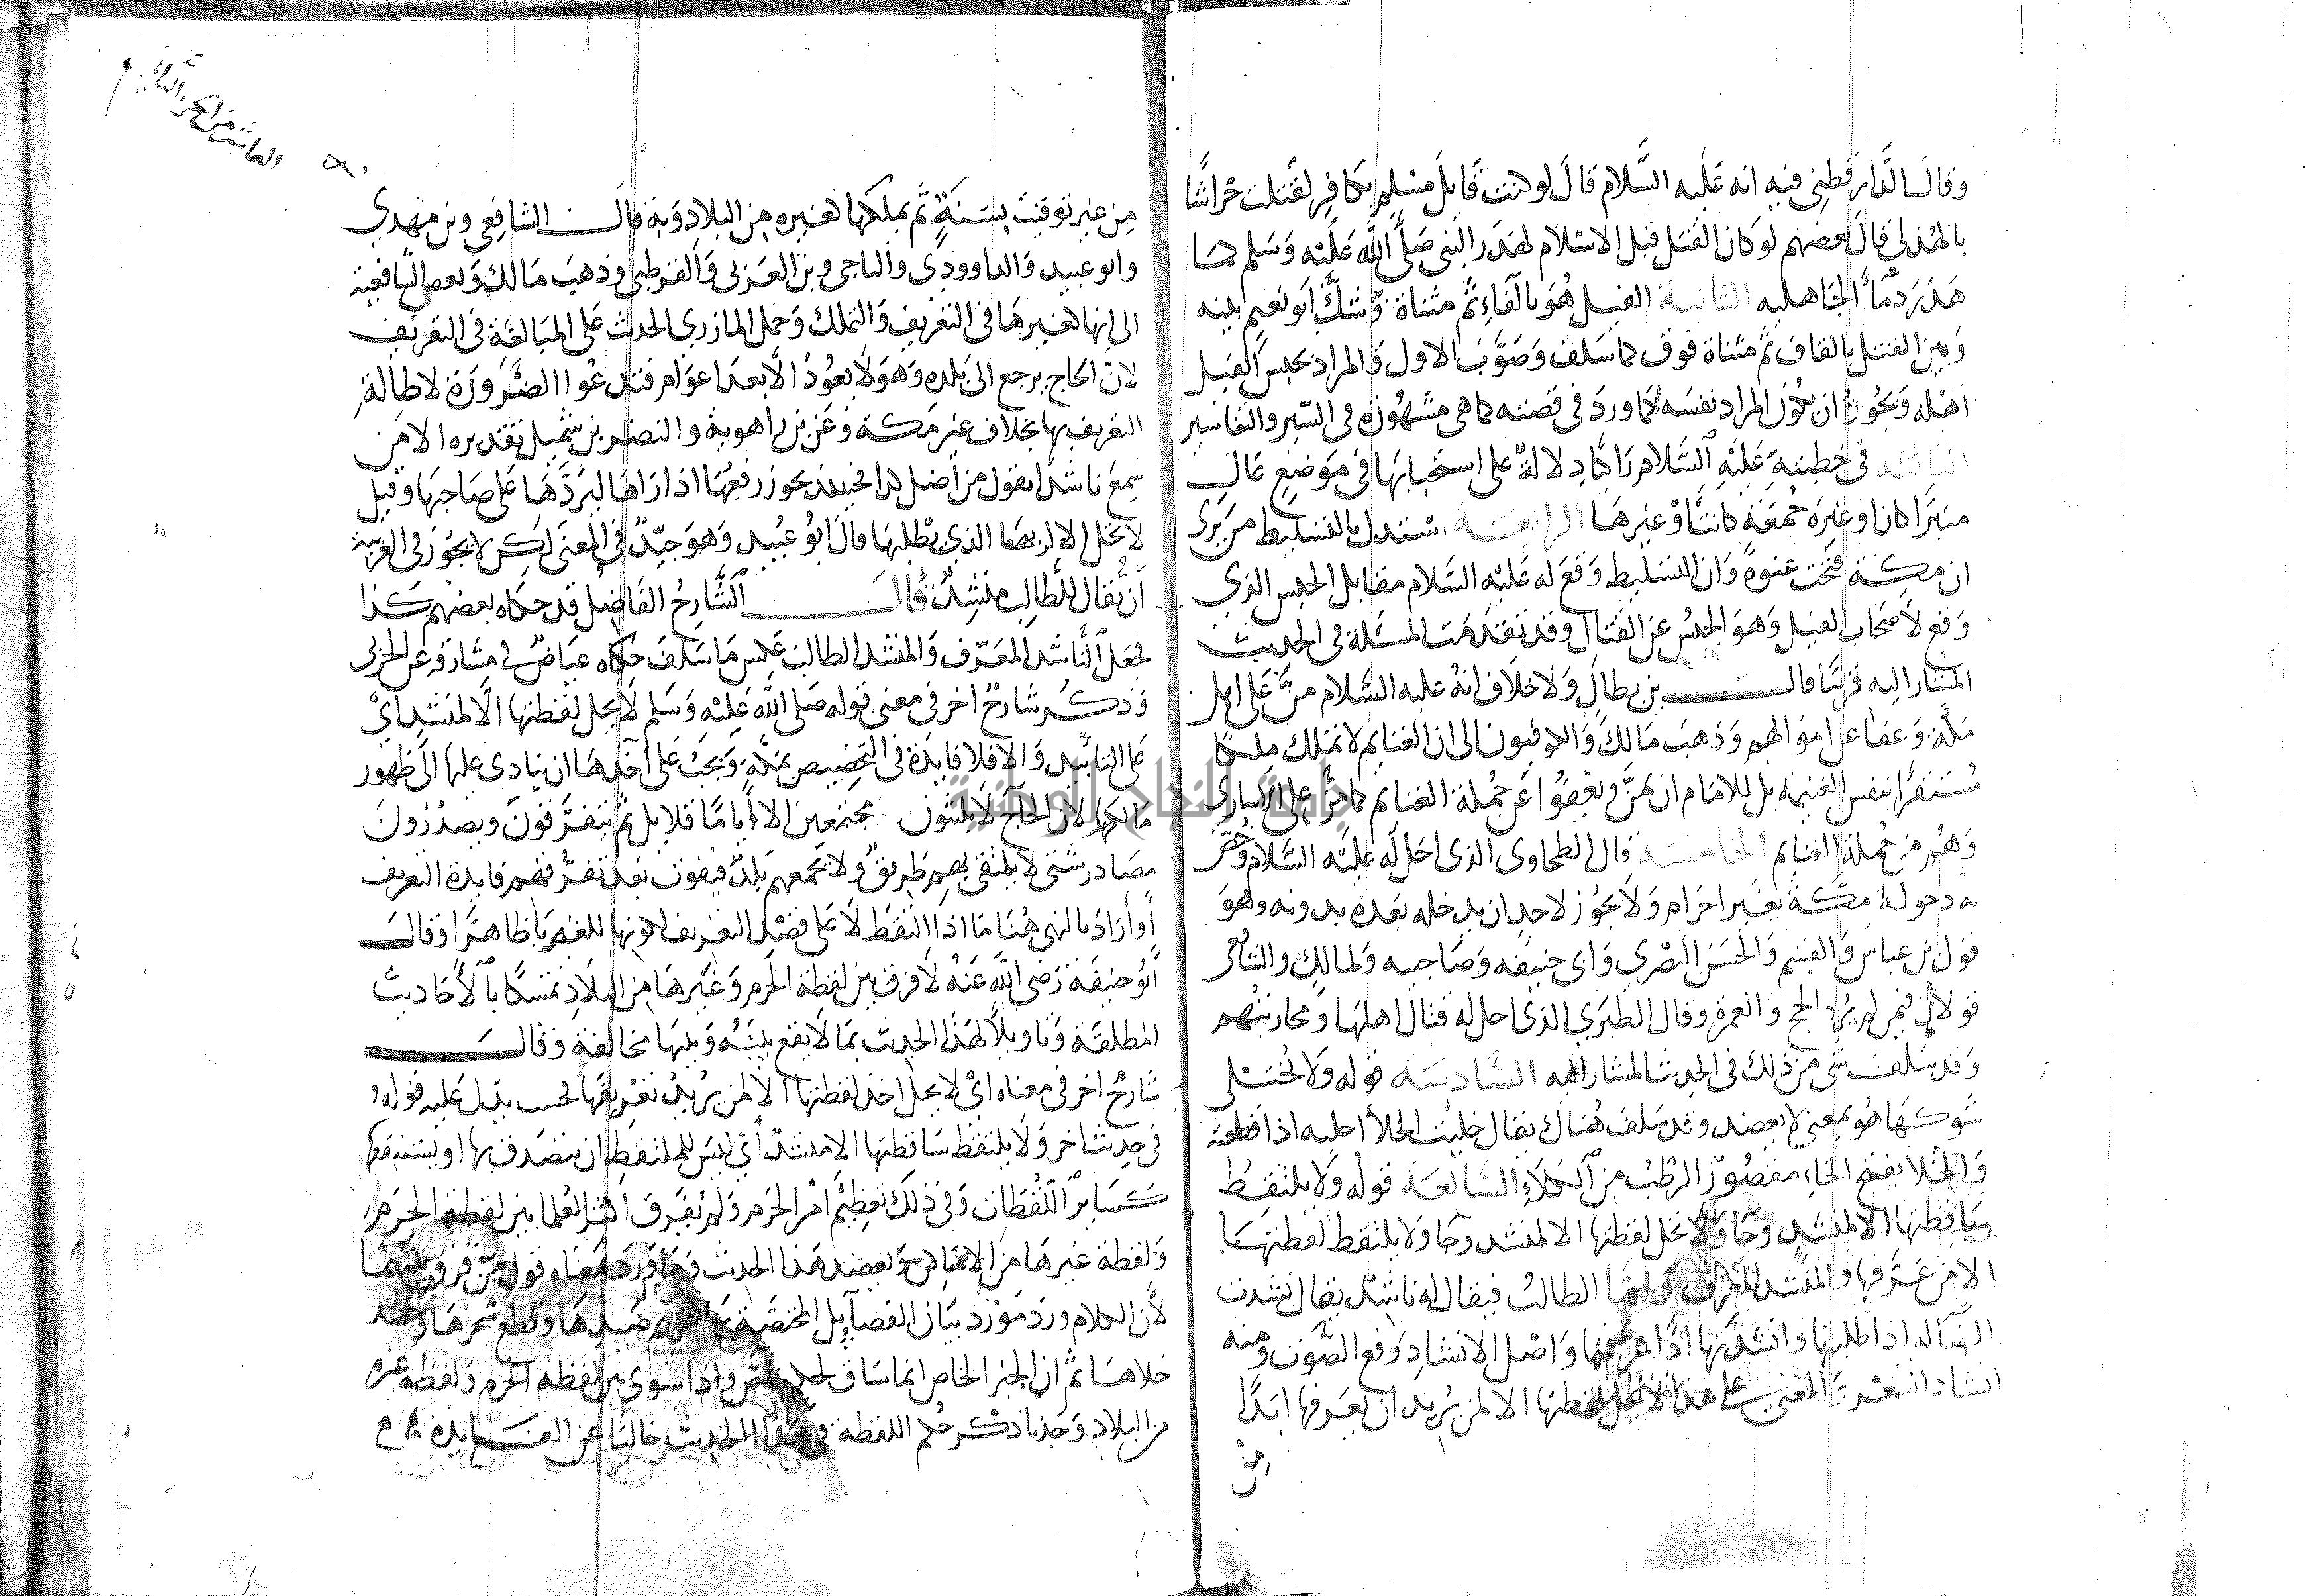 وقال الدارقطني فيه انه عليه السلام قال لو كنت قاتل مسلم بكافر لقتلت خراشا
بالهذلي قال بعضهم لو كان القتل قبل الاسلام لهدر النبي صلى الله عليه وسلم كما
هدر دماء الجاهلية الثانية الفيل هو بالفاء ثم مثناة وشك ابو نعيم بينه
وبين القتل بالقاف ثم مثناة فوق كما سلف وصوب الاول والمراد بحبس الفيل
اهله ويجوز ان يكون المراد نفسه كما ورد في قصته كما هي مشهورة في السير والتفاسير
الثالثة في خطبته عليه السلام راكبا دلالة على استحبابها في موضع عال
منبرا كان او غيره جمعة كانت او غيرها الرابعة استدل بالتسليط من يرى
ان مكة فتحت عنوة وان التسليط وقع له عليه السلام مقابل الحبس الذي
وقع لاصحاب الفيل وهو الحبس عن القتال وقد تقدمت المسئلة في الحديث
المشار اليه قريبا قال بن بطال ولا خلاف انه عليه السلام من على اهل
مكة وعفا عن اموالهم وذهب مالك والكوفيون الى ان الغنايم لا تملك ملكا
مستقرا بنفس الغنيمة بل للامام ان يمن ويعفوا عن جملة الغنايم كما من على الاسارى
وهم من جملة الغنايم الخامسة قال الطحاوي الذي احل له عليه السلام وخص
به دخوله مكة بغير احرام ولا يجوز لاحد ان يدخله بعده بدونه وهو
قول بن عباس والقسم والحسن البصري وابي حنيفة وصاحبيه ولمالك والشافعي
قولان فيمن لم يرد الحج والعمرة وقال الطبري الذي احل له قتال اهلها ومحاربتهم
وقد سلف شي من ذلك في الحديث المشار اليه السادسة قوله ولا يختلى
شوكها هو بمعنى لا يعضد وقد سلف هناك يقال خليت الخلا اخليه اذا قطعته
والخلا بفتح الخاء مقصور الرطب من الكلاء السابعة قوله ولا يلتقط
ساقطتها الا لمنشد وجا ولا تحل لقطتها الا لمنشد وجا ولا يلتقط لقطتها
الا من عرفها والمنشد المعرف واما الطالب فيقال له ناشد يقال نشدت
الضالة اذا طلبتها وانشدتها اذا عرفتها واصل الانشاد رفع الصوت ومنه
انشاد الشعر والمعنى على هذا لا تحل لقطتها الا لمن يريد ان يعرفها ابدا
من
العاشر من الجزء
من غير توقيت بسنة ثم يملكها كغيره من البلاد وبه قال الشافعي وبن مهدي
وابو عبيد والداوودي والباجي وبن العربي والقرطبي وذهب مالك وبعض الشافعية
الى انها كغيرها في التعريف والتملك وحمل المازري الحديث على المبالغة في التعريف
لان الحاج يرجع الى بلده وهو لا يعود الا بعد اعوام فتدعوا الضرورة لاطالة
التعريف بها بخلاف غير مكة وعن بن راهويه والنضر بن شميل تقديره الا من
سمع ناشدا يقول من اضل كذا فحينئذ يجوز رفعها اذا راها ليردها على صاحبها وقيل
لا تحل الا لربها الذي يطلبها قال ابو عبيد وهو جيد في المعنى لكن لا يجوز في العربية
ان يقال للطالب منشد قال الشارح الفاضل قد حكاه بعضهم كذا
فجعل الناشد المعرف والمنشد الطالب عكس ما سلف حكاه عياض في مشارقه عن الحربي
وذكر شارح اخر في معنى قوله صلى الله عليه وسلم لا يحل لقطتها الا لمنشد اي
على التابيد والا فلا فايدة في التخصيص بمكة ويجب على آخذها ان ينادي عليها الى ظهور
مالكها لان الحاج لا يلبثون مجتمعين الا اياما قلايل ثم يتفرقون ويصدرون
مصادر شتى لا يلتقي بهم طريق ولا تجمعهم بلد فيفوت بعد تفرقهم فايدة التعريف
او اراد بالنهي هنا ما اذا التقط لا على قصد التعريف لكونها للغرباء ظاهرا وقال
ابو حنيفة رضي الله عنه لا فرق بين لقطة الحرم وغيرها من البلاد تمسكا بالاحاديث
المطلقة وتاويلا لهذا الحديث بما لا يقع بينه وبينها مخالفة وقال
شارح اخر في معناه اي لا يحل اخذ لقطتها الا لمن يريد تعريفها فحسب يدل عليه قوله
في حديث اخر ولا يلتقط ساقطتها الا منشد اي ليس للملتقط ان يتصدق بها او يستنفقها
كساير اللقطات وفي ذلك تعظيم امر الحرم ولم يفرق اكثر العلما بين لقطة الحرم
ولقطة غيرها من الاماكن ويعضد هذا الحديث وما ورد معناه قول من فرق بينهما
لان الكلام ورد مورد بيان الفضايل المختصة بها كتحريم صيدها وقطع شجرها وحصد
خلاها ثم ان الخبر الخاص انما ساق لحكم خاص واذا سوى بين لقطة الحرم ولقطة غيره
من البلاد وجدنا ذكر حكم اللقطة في هذا الحديث خاليا عن الفايدة